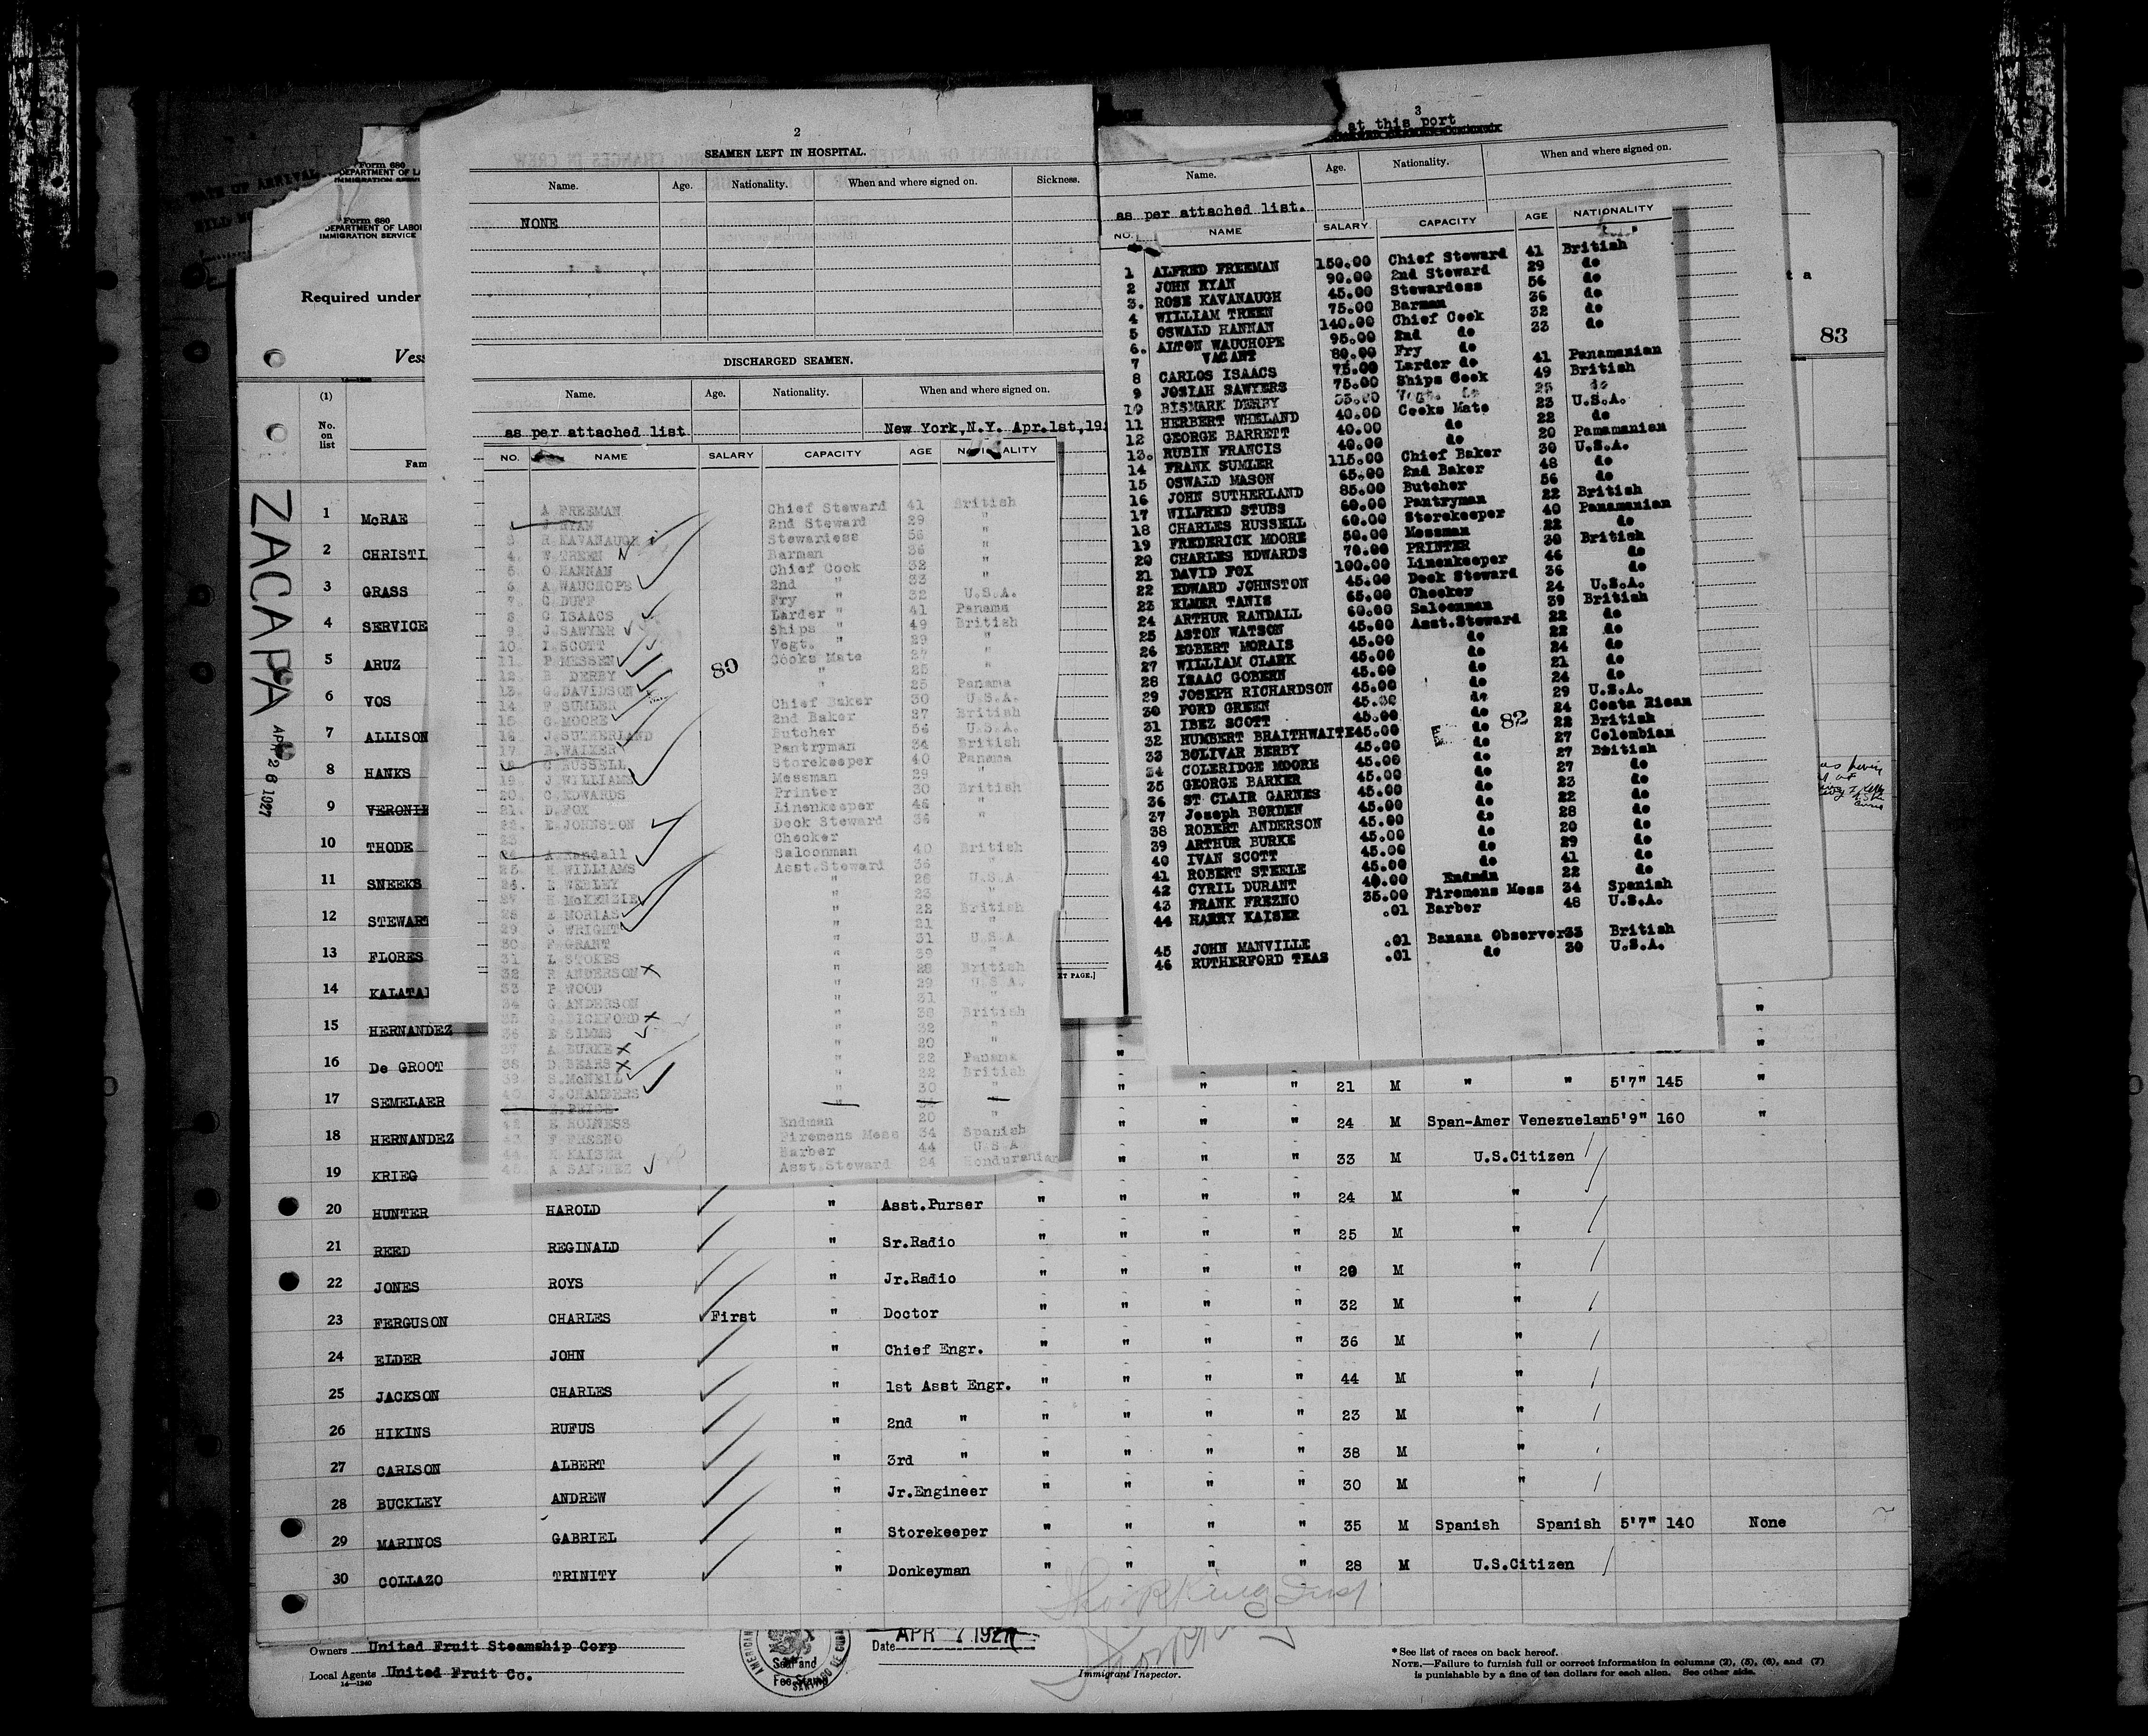 Form 680
DEPARTMENT OF LA
IMMIGRATION SERV
Form 680
DEPARTMENT OF LABO
IMMIGRATION SERVICE
Required under
Vess
(1)
No. on list
Fam
ZACAPA
APR 26 1927
2
SEAMEN LEFT IN HOSPITAL.
Name. Age. Nationality. When and where signed on. Sickness.
NONE
DISCHARGED SEAMEN.
Name. Age. Nationality. When and where signed on.
as per attached list New York,N.Y. Apr.1st,19
NO. NAME SALARY CAPACITY AGE NATIONALITY
A FREEMAN Chief Steward 41 British
J RYAN 2nd Steward 29 "
3. R.KAVANAUGH Stewardess 56 "
4. W.TREEN Barman 36 "
5. O.HANNAN Chief Cook 32 "
6. A.WAUCHOPE 2nd " 33 "
7. C.DUFF Fry " 32 U.S.A.
8. C ISAACS Larder " 41 Panama
9. J.SAWYER Ships " 49 British
10. I.SCOTT Vegt. " 29 "
11. P.MESSEN Cooks Mate 27 "
12. B DERBY " 25 "
13. G.DAVIDSON " 25 Panama
14. F.SUMLER Chief Baker 30 U.S.A.
15. G.MOORE 2nd Baker 27 British
16. J.SUTHERLAND Butcher 56 U.S.A.
17. R.WALKER Pantryman 34 British
18. C.RUSSELL Storekeeper 40 Panama
19. J.WILLIAMS Messman 29 "
20. C.EDWARDS Printer 30 British
21. D.FOX Linenkeeper 46 "
22. E.JOHNSTON Deck Steward 36 "
23. Checker
24. A.Randall Saloonman 40 British
25. WILLIAMS Asst.Steward 36 "
26. E WEBLEY " 26 U.S.A.
27 H McKENZIE " 23 "
28 E MORIAS " 22 British
29 G WRIGHT " 21 "
30. F.GRANT " 31 U.S.A
31 L STOKES " 39 "
32. R ANDERSON " 28 British
33 P WOOD " 29 U.S.A.
34 G ANDERSON " 31 "
35 G.BICKFORD " 38 British
36 E SIMMS " 32 "
37 A BURKE " 20 "
38 D.BEARS " 22 Panama
39. S.McNEIL " 22 British
40. J.CHAMBERS " 30 "
PRICE
42 E HOLNESS Endman 20 "
43 F FRESNO Firemens Mess 34 Spanish
44. H KAISER Barber 44 U.S.A
45. A SANCHEZ Asst.Steward 24 Honduranian
80
3
at this port
Name. Age. Nationality. When and where signed on.
as per attached list.
NO. NAME SALARY CAPACITY AGE NATIONALITY
1 ALFRED FREEMAN 150.00 Chief Steward 41 British
2 JOHN RYAN 90.00 2nd Steward 29 do
3. ROSE KAVANAUGH 45.00 Stewardess 56 do
4 WILLIAM TREEN 75.00 Barman 36 do
5 OSWALD HANNAN 140.00 Chief Cook 32 do
6. ALTON WAUCHOPE 95.00 2nd do 33 do
7 VACANT 80.00 Fry do
8 CARLOS ISAACS 75.00 Larder do 41 Panamanian
9 JOSIAH SAWYERS 75.00 Ships Cook 49 British
10 BISMARK DERBY 55.00 Vegt. do 25 do
11 HERBERT WHELAND 40.00 Cooks Mate 23 U.S.A.
12 GEORGE BARRETT 40.00 do 22 do
13. RUBIN FRANCIS 40.00 do 20 Panamanian
14 FRANK SUMLER 115.00 Chief Baker 30 U.S.A.
15 OSWALD MASON 65.00 2nd Baker 48 do
16 JOHN SUTHERLAND 85.00 Butcher 56 do
17 WILFRED STUBS 60.00 Pantryman 22 British
18 CHARLES RUSSELL 60.00 Storekeeper 40 Panamanian
19 FREDERICK MOORE 50.00 Messman 22 do
20 CHARLES EDWARDS 70.00 PRINTER 30 British
21 DAVID FOX 100.00 Linenkeeper 46 do
22 EDWARD JOHNSTON 45.00 Deck Steward 36 do
23 ELMER TANIS 65.00 Checker 24 U.S.A.
24 ARTHUR RANDALL 60.00 Saloonman 39 British
25 ASTON WATSON 45.00 Asst.Steward 22 do
26 EGBERT MORAIS 45.00 do 22 do
27 WILLIAM CLARK 45.00 do 24 do
28 ISAAC GOBERN 45.00 do 21 do
29 JOSEPH RICHARDSON 45.00 do 24 do
30 FORD GREEN 45.00 do 29 U.S.A.
31 IBEZ SCOTT 45.00 do 24 Costa Rican
32 HUMBERT BRAITHWAITE 45.00 do 22 British
33 BOLIVAR BERBY 45.00 do 27 Colombian
34 COLERIDGE MOORE 45.00 do 27 British
35 GEORGE BARKER 45.00 do 27 do
36 ST CLAIR GARNES 45.00 do 23 do
37 Joseph BORDEN 45.00 do 22 do
38 ROBERT ANDERSON 45.00 do 28 do
39 ARTHUR BURKE 45.00 do 20 do
40 IVAN SCOTT 45.00 do 29 do
41 ROBERT STEELE 45.00 do 41 do
42 CYRIL DURANT 40.00 Endman 22 do
43 FRANK FREZNO 35.00 Firemens Mess 34 Spanish
44 HARRY KAISER .01 Barber 48 U.S.A.
45 JOHN MANVILLE .01 Banana Observer 33 British
46 RUTHERFORD TEAS .01 do 30 U.S.A.
82
83
ET PAGE.]
1 McRAE
2 CHRISTI
3 GRASS
4 SERVICE
5 ARUZ
6 VOS
7 ALLISON
8 HANKS
9 VERONIE
10 THODE
11 SNEEKS
12 STEWART
13 FLORES
14 KALATAI
15 HERNANDEZ
16 De GROOT
17 SEMELAER " " " 21 M " " 5'7" 145 "
18 HERNANDEZ " " " 24 M Span-Amer Venezuelan 5'9" 160 "
19 KRIEG " " " 33 M U.S.Citizen
20 HUNTER HAROLD " Asst.Purser " " " " 24 M "
21 REED REGINALD " Sr.Radio " " " " 25 M "
22 JONES ROYS " Jr.Radio " " " " 20 M "
23 FERGUSON CHARLES First " Doctor " " " " 32 M "
24 ELDER JOHN " Chief Engr. " " " " 36 M "
25 JACKSON CHARLES " 1st Asst Engr. " " " " 44 M "
26 HIKINS RUFUS " 2nd " " " " " 23 M "
27 CARLSON ALBERT " 3rd " " " " " 38 M "
28 BUCKLEY ANDREW " Jr.Engineer " " " " 30 M "
29 MARINOS GABRIEL " Storekeeper " " " " 35 M Spanish Spanish 5'7" 140 None
30 COLLAZO TRINITY " Donkeyman " " " " 28 M U.S.Citizen
Owners United Fruit Steamship Corp
Local Agents United Fruit Co.
14—1240
AMERICAN
SANTIAGO DE CUBA
Seal and
Fee Stamp
Date APR 7 1927
Immigrant Inspector.
* See list of races on back hereof.
NOTE.—Failure to furnish full or correct information in columns (2), (5), (6), and (7)
is punishable by a fine of ten dollars for each alien. See other side.